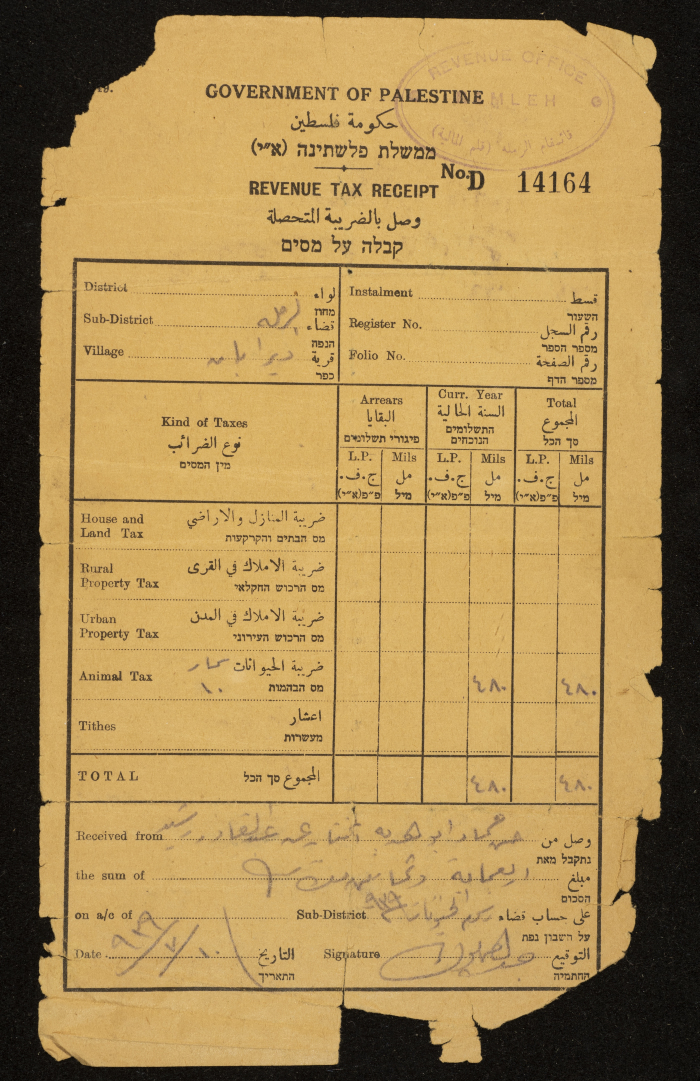 19.
REVENUE OFFICE
MLEH
GOVERNMENT OF PALESTINE
حكومة فلسطين
ממשלת פלשתינה (א״י)
No. D 14164
REVENUE TAX RECEIPT
وصل بالضريبة المتحصلة
קבלה על מסים
District لواء מחוז
Sub-District الرملة قضاء הנפה
Village قرية כפר
Instalment قسط השעור
Register No. رقم السجل מספר הספר
Folio No. رقم الصفحة מספר הדף
Kind of Taxes
نوع الضرائب
מין המסים
Arrears
البقايا
פיגורי תשלומים
Curr. Year
السنة الحالية
התשלומים הנוכחים
Total
المجموع
סך הכל
L.P. Mils L.P. Mils L.P. Mils
ج.ف. مل ج.ف. مل ج.ف. مل
פ״פ(א״י) מיל פ״פ(א״י) מיל פ״פ(א״י) מיל
House and Land Tax ضريبة المنازل والاراضي
מס הבתים והקרקעות
Rural Property Tax ضريبة الاملاك في القرى
מס הרכוש החקלאי
Urban Property Tax ضريبة الاملاك في المدن
מס הרכוש העירוני
Animal Tax ضريبة الحيوانات ١٠ ٤٨٠ ٤٨٠
מס הבהמות
Tithes اعشار
מעשרות
TOTAL المجموع סך הכל ٤٨٠ ٤٨٠
Received from وصل من
נתקבל מאת
the sum of مبلغ
הסכום
on a/c of Sub-District على حساب قضاء
על חשבון נפת
Date ١٠/٧/٩٣٩ التاريخ Signature التوقيع
התאריך החתימה